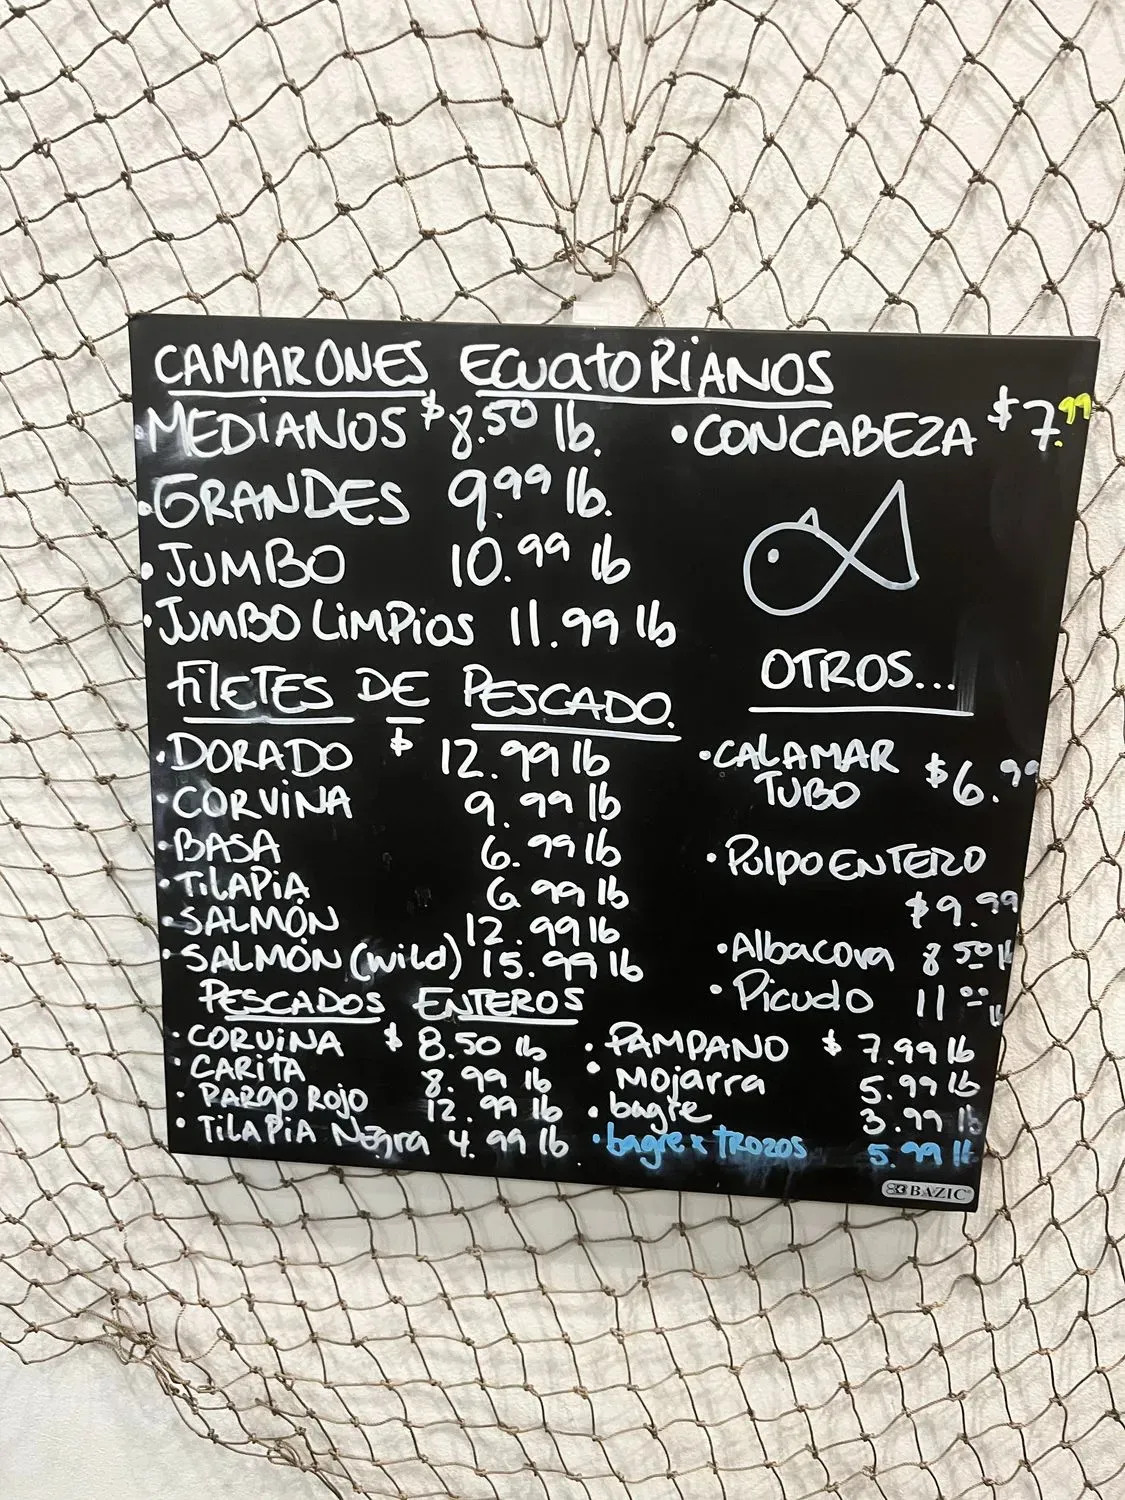 CAMARONES ECUATORIANOS
• MEDIANOS $ 8.50 lb.
• GRANDES 9.99 lb.
• JUMBO 10.99 lb
• JUMBO LIMPIOS 11.99 lb
• CON CABEZA $ 7.99
FILETES DE PESCADO.
• DORADO $ 12.99 lb
• CORVINA 9.99 lb
• BASA 6.99 lb
• TILAPIA 6.99 lb
• SALMÓN 12.99 lb
• SALMÓN (wild) 15.99 lb
OTROS...
• CALAMAR
TUBO $6.99
• PULPO ENTERO
$9.99
• Albacora 8 50 lb
• Picudo 11 00 lb
PESCADOS ENTEROS
• CORVINA $ 8.50 lb
• CARITA 8.99 lb
• PARGO ROJO 12.99 lb
• TILAPIA Negra 4.99 lb.
• PAMPANO $ 7.99 lb
• MOJARRA 5.99 lb
• bagre 3.99 lb
• bagre x TROZOS 5.99 lb
BAZIC